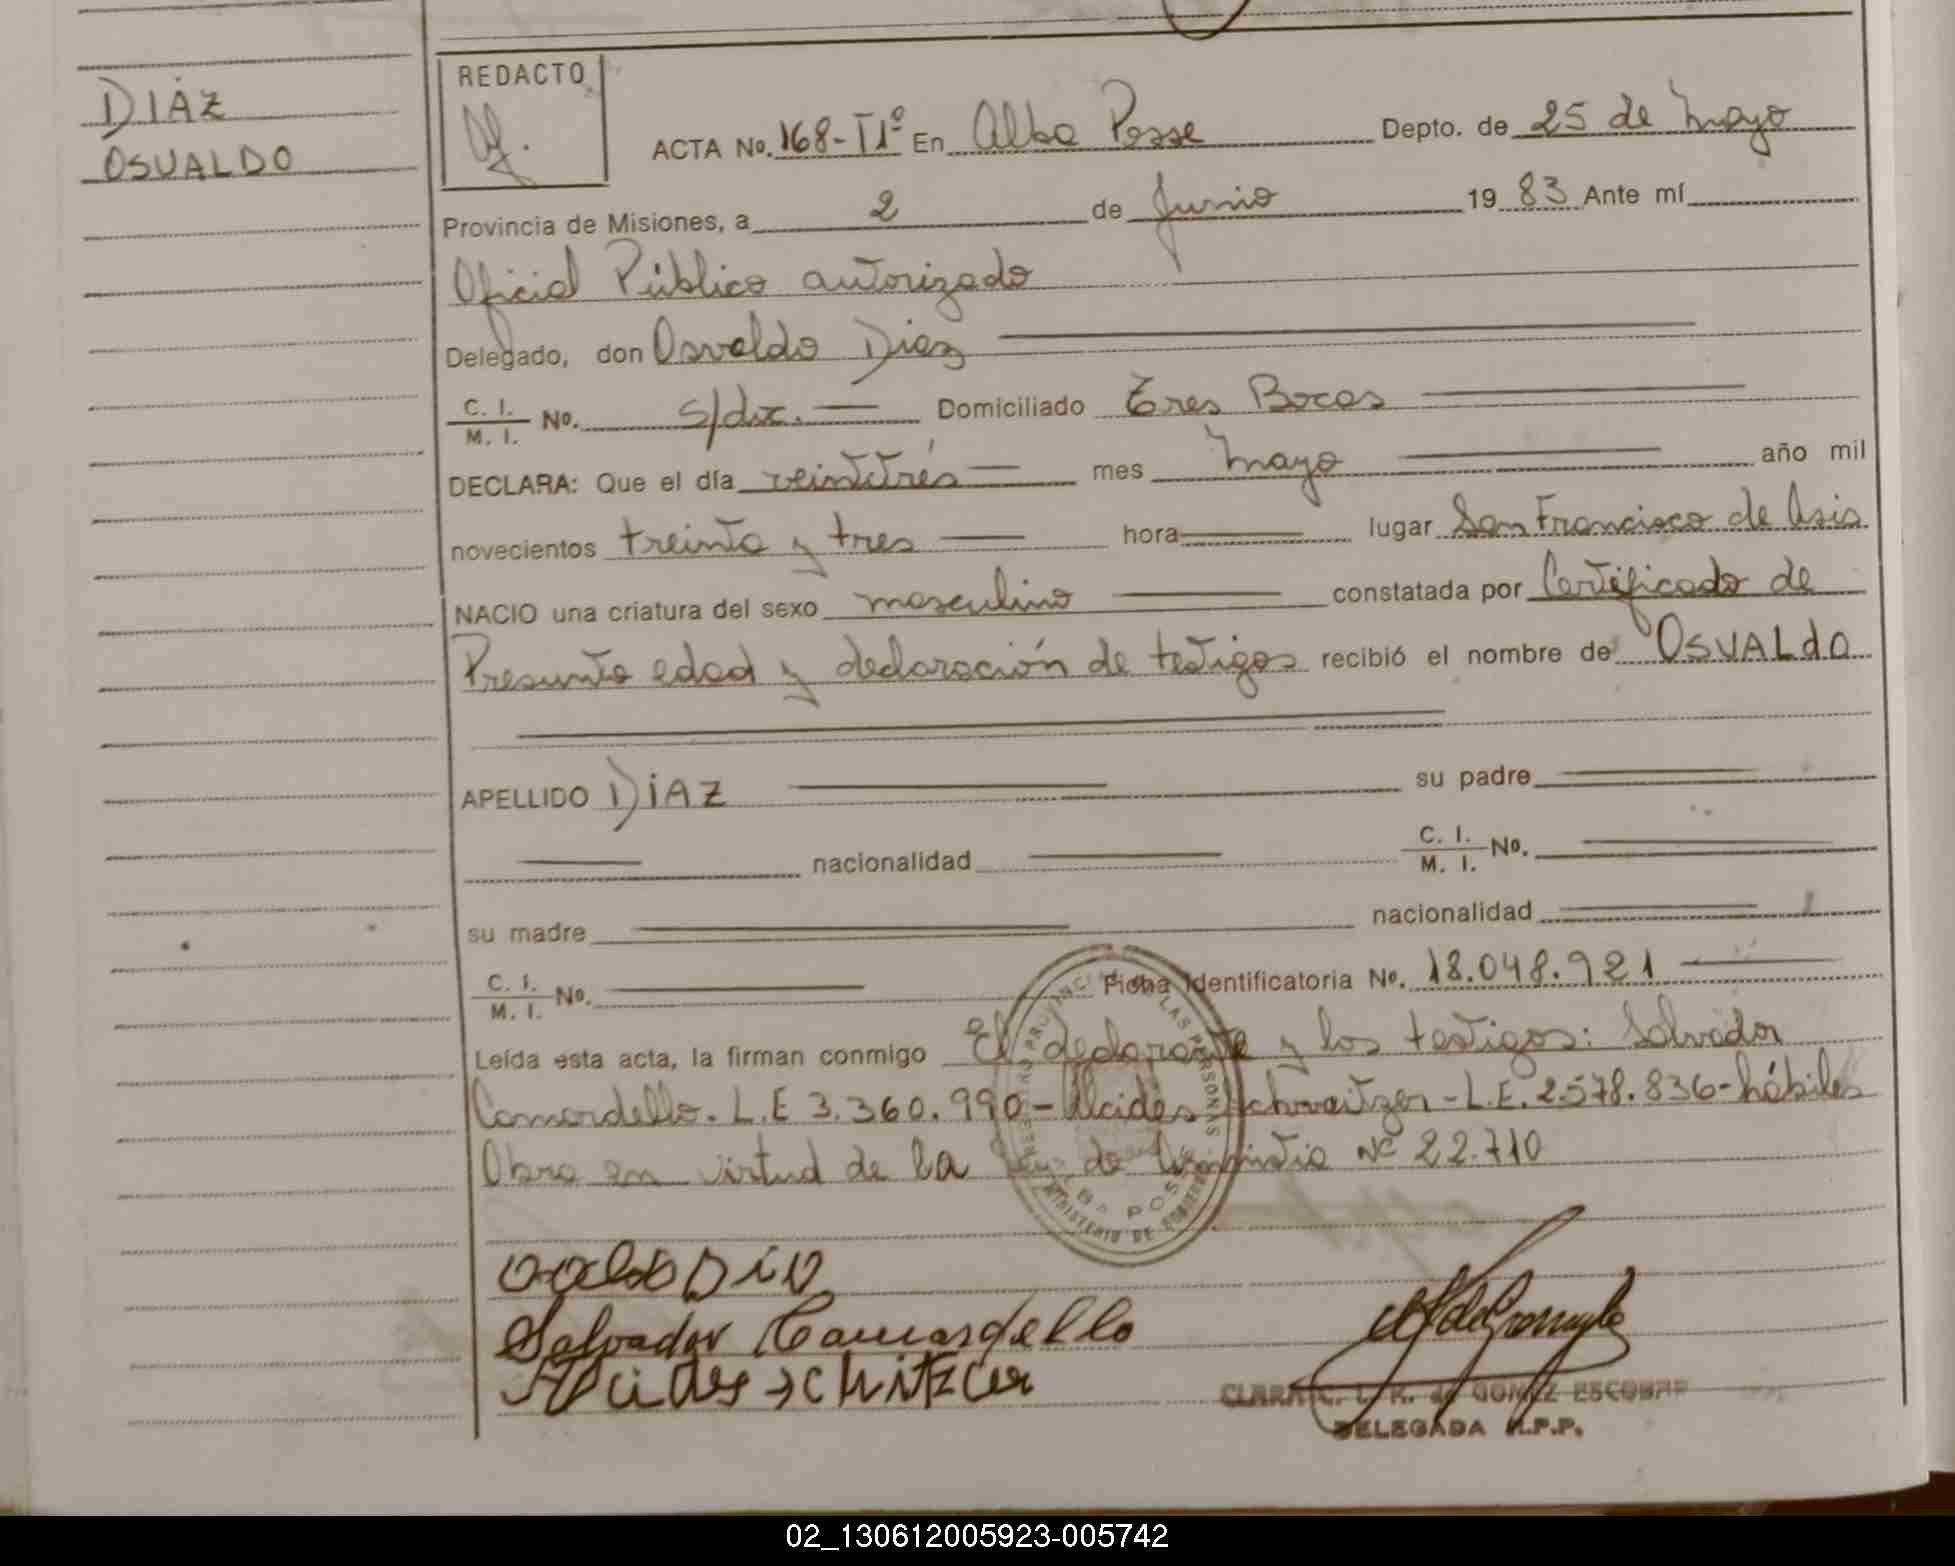 DIAZ
OSVALDO
REDACTO
ACTA No. 168-T1º En Alba Posse Depto. de 25 de Mayo
Provincia de Misiones, a 2 de Junio 19 83 Ante mí
Oficial Público autorizado
Delegado, don Osvaldo Diaz
C. I. / M. I. No. s/dic. Domiciliado Tres Bocas
DECLARA: Que el día veintitrés mes mayo año mil
novecientos treinta y tres hora lugar San Francisco de Asis
NACIO una criatura del sexo masculino constatada por Certificado de
Presunta edad y declaración de testigos recibió el nombre de OSVALdO
APELLIDO DiAZ su padre
nacionalidad C. I. / M. I. No.
su madre nacionalidad
C. I. / M. I. No. Ficha Identificatoria No. 18.048.921
Leída esta acta, la firman conmigo El declarante y los testigos: Salvador
Camardello. L.E 3.360.990 - Alcides Schvaitzer - L.E. 2.578.836 - hábiles
Obra en virtud de la Ley de Amnistia Nº 22.710
REGISTRO PROVINCIAL DE LAS PERSONAS
ALBA POSSE
MINISTERIO DE GOBIERNO
Salvador Camardello
Alcides schvitzer
CLARA C. L. K. de GOMEZ ESCOBAR
DELEGADA R.P.P.
02_130612005923-005742